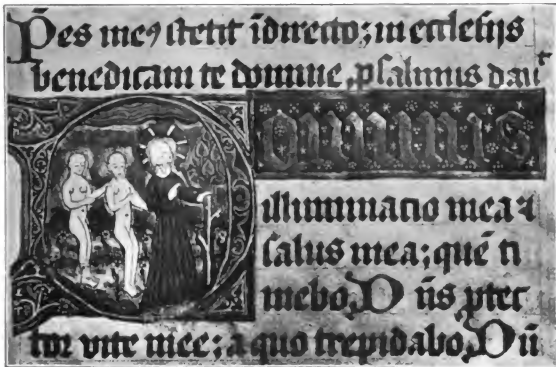 Pes meꝰ stetit ī directo; in ecclesijs
benedicam te domine. psalmus dauit
Dominus
illuminatio mea ⁊
salus mea; quē ti
mebo, Dn̄s ꝓtec
tor vite mee; a quo trepidabo, Dū